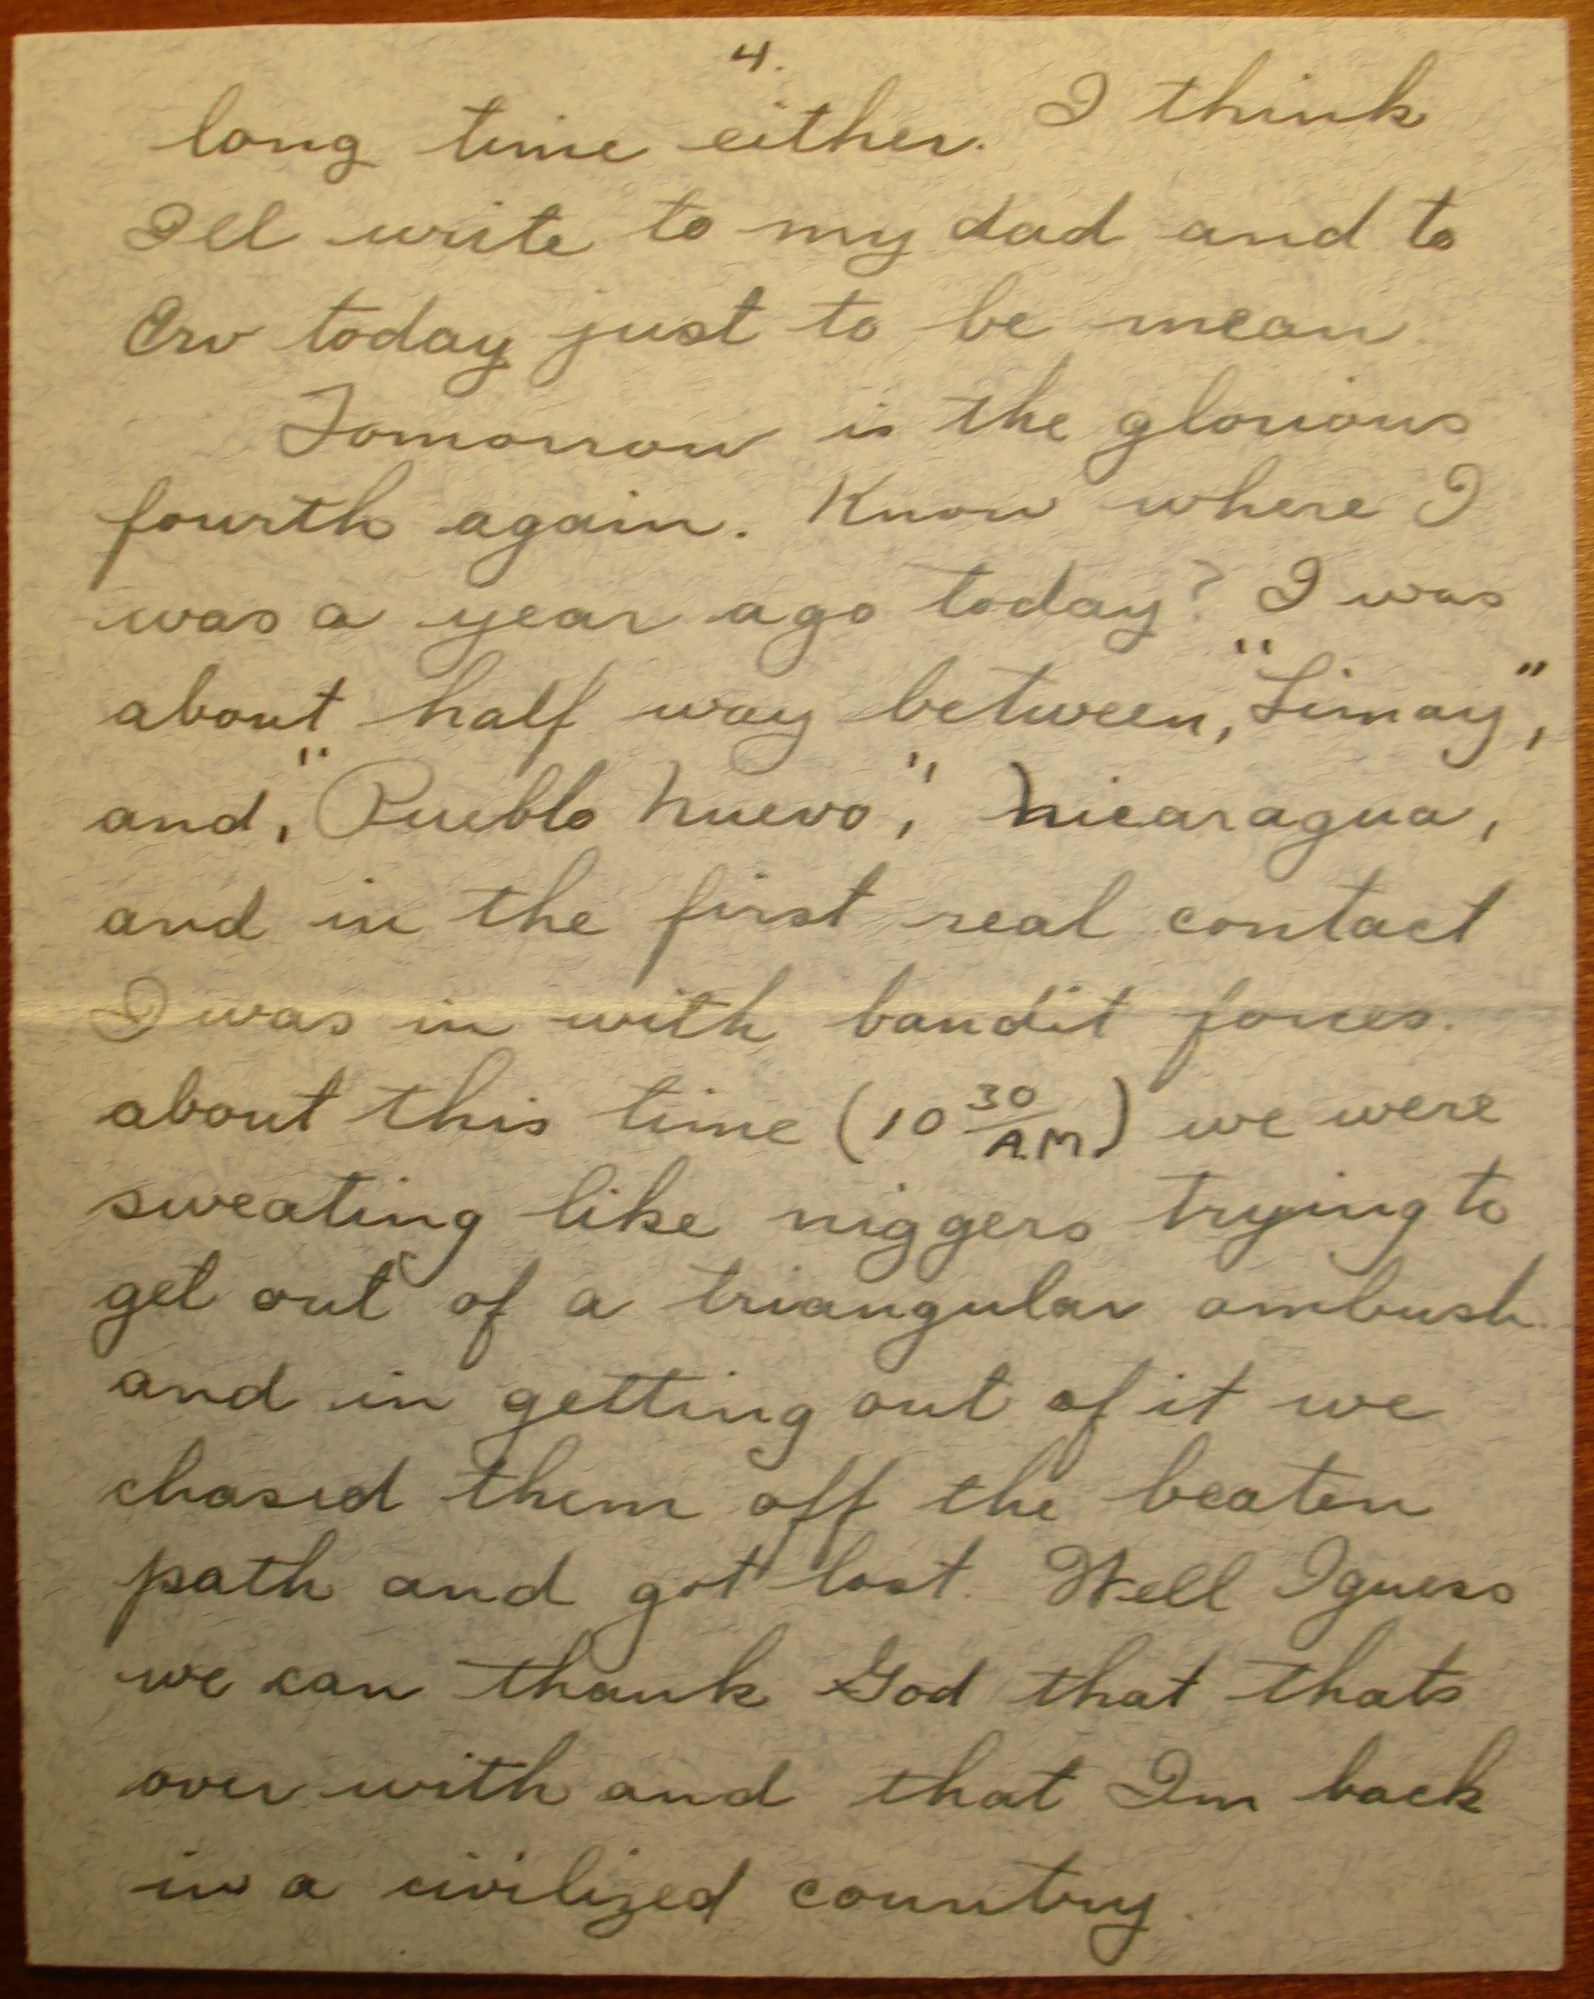 4.
long time either. I think
Ill write to my dad and to
Erv today just to be mean.
Tomorrow is the glorious
fourth again. Know where I
was a year ago today? I was
about half way between, "Limay",
and, "Pueblo Nuevo", Nicaragua,
and in the first real contact
I was in with bandit forces.
about this time (10 30/A.M.) we were
sweating like niggers trying to
get out of a triangular ambush.
and in getting out of it we
chased them off the beaten
path and got lost. Well I guess
we can thank God that thats
over with and that Im back
in a civilized country.